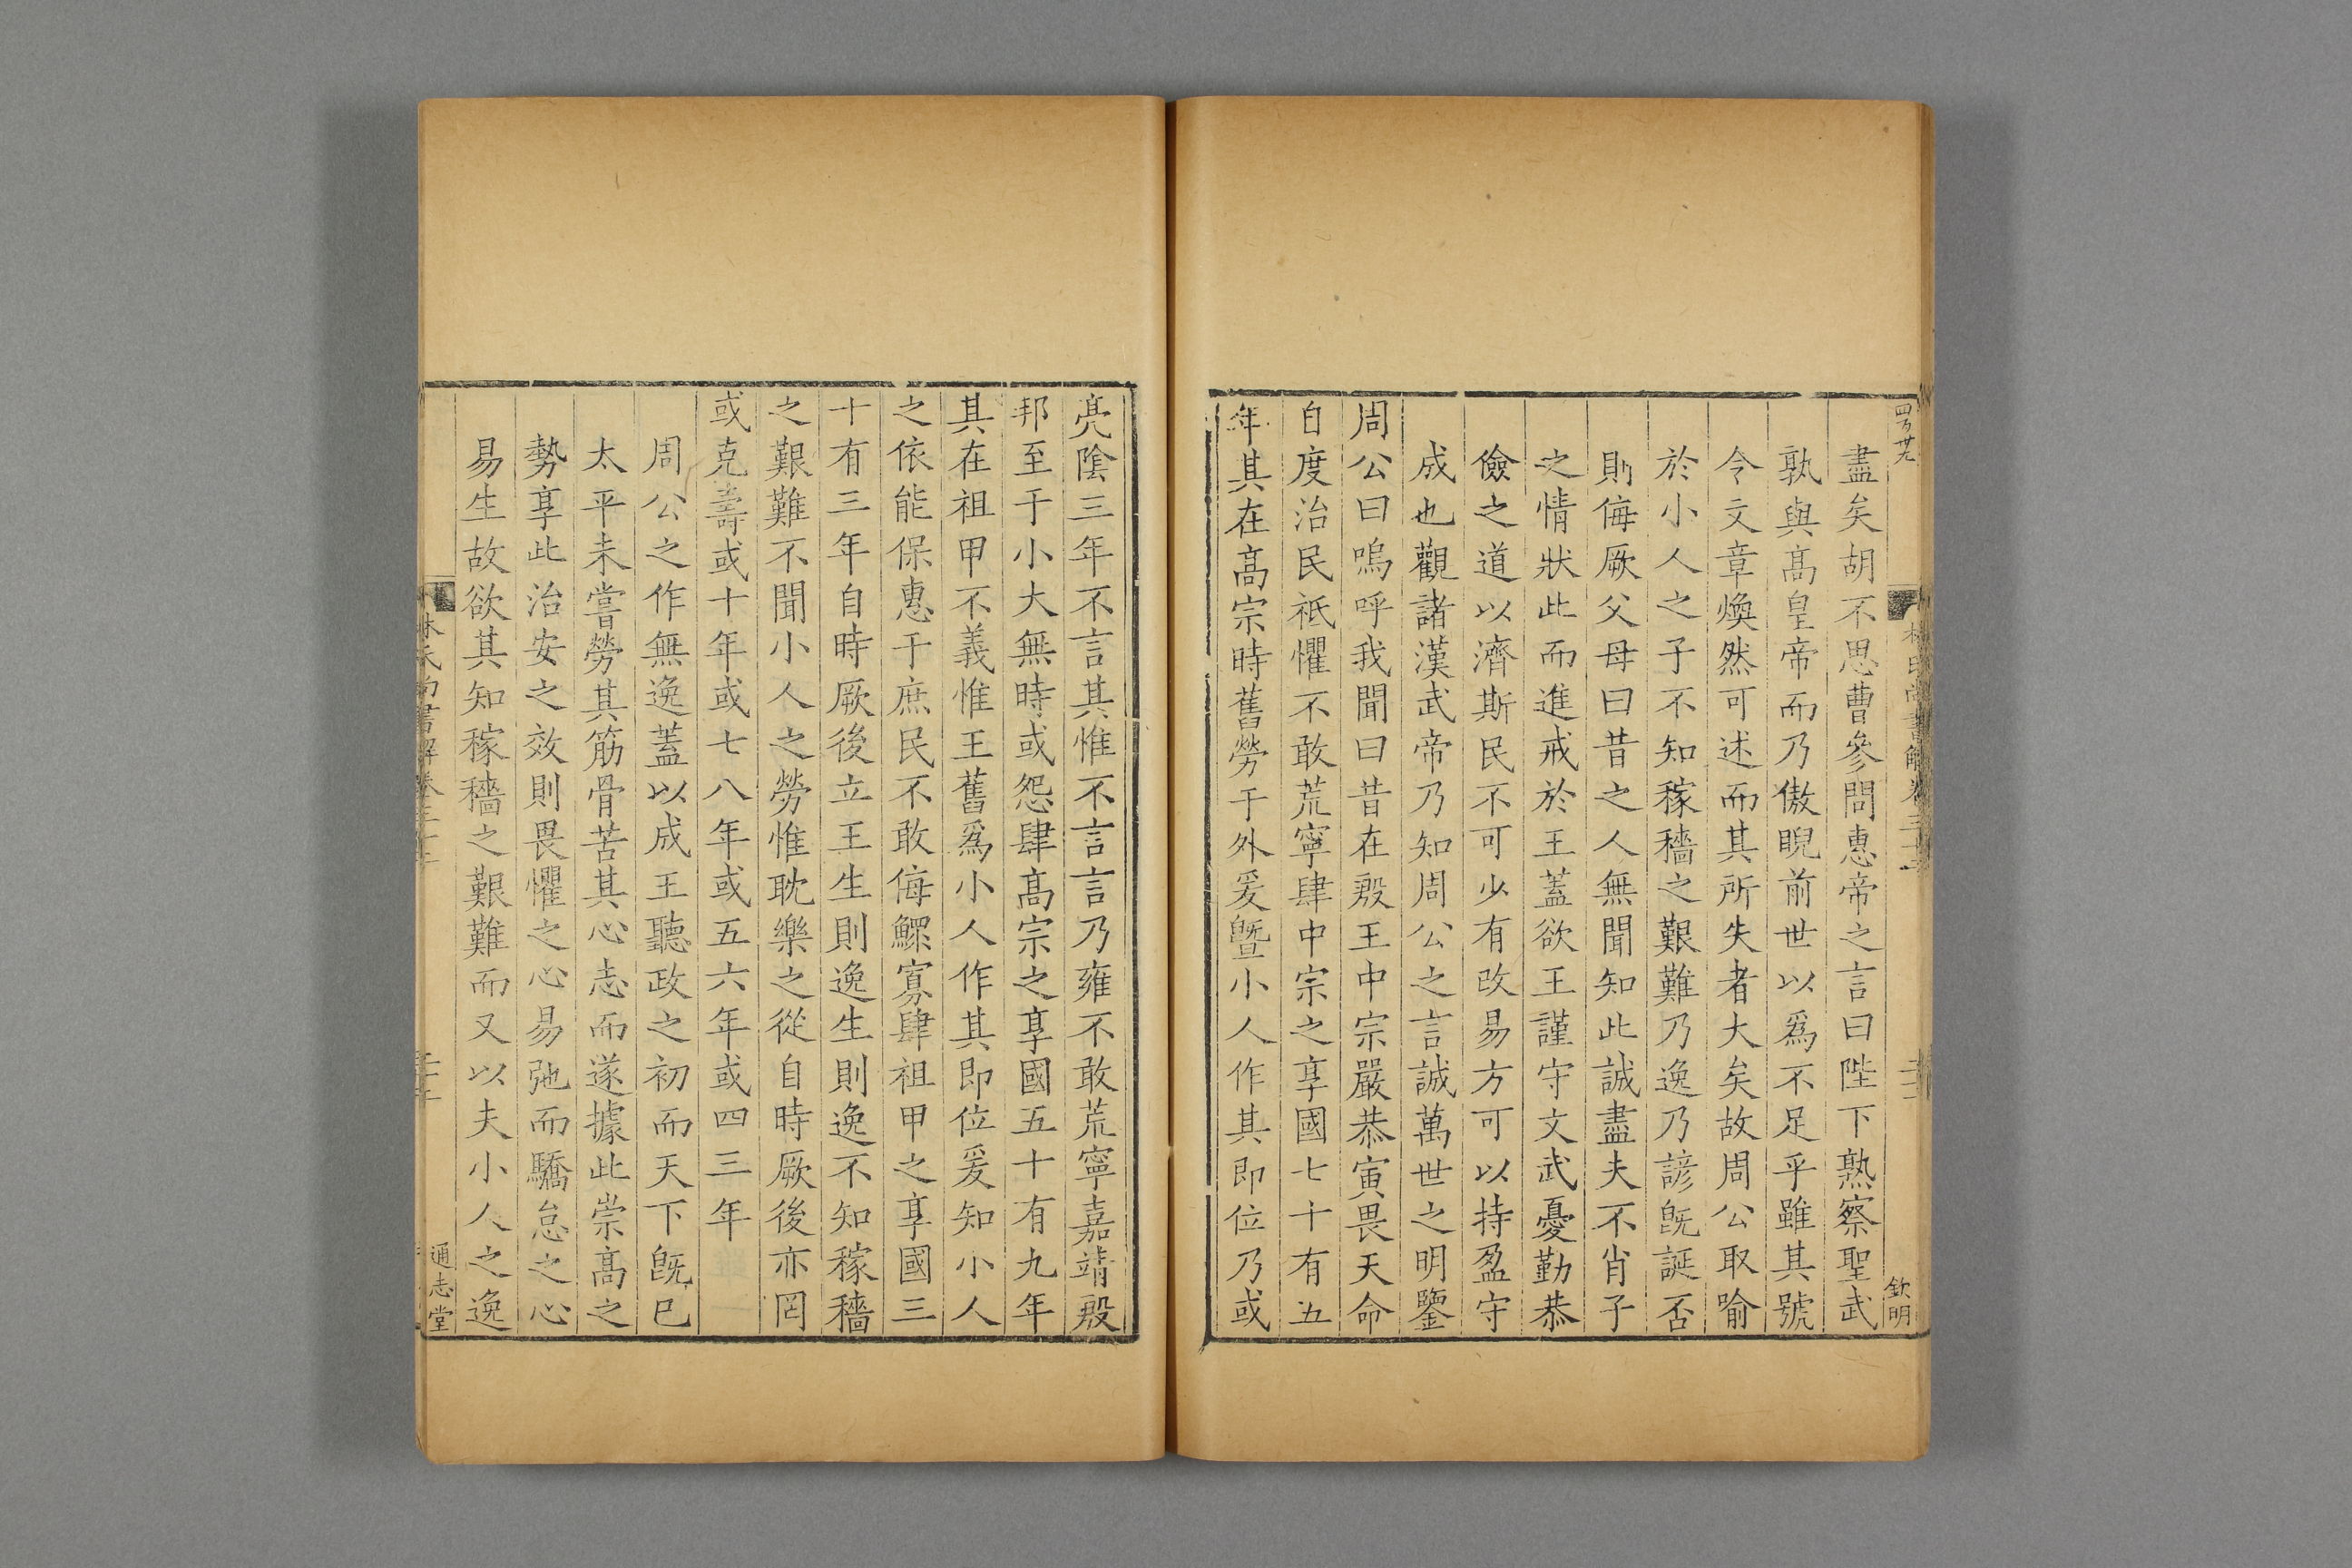 盡矣胡不思曹參問惠帝之言曰陛下熟察聖武
孰與髙皇帝而乃傲睨前世以爲不足乎雖其號
令文章煥然可述而其所失者大矣故周公取喻
於小人之子不知稼穡之艱難乃逸乃諺旣誕否
則侮厥父母曰昔之人無聞知此誠盡夫不肖子
之情狀此而進戒於王蓋欲王謹守文武憂勤恭
儉之道以濟斯民不可少有改易方可以持盈守
成也觀諸漢武帝乃知周公之言誠萬世之明鑒
周公曰嗚呼我聞曰昔在殷王中宗嚴恭寅畏天命
自度治民祗懼不敢荒寧肆中宗之享國七十有五
年其在髙宗時舊勞于外爰曁小人作其即位乃或
欽明
亮陰三年不言其惟不言言乃雍不敢荒寧嘉靖殷
邦至于小大無時或怨肆髙宗之享國五十有九年
其在祖甲不義惟王舊爲小人作其即位爰知小人
之依能保惠于庶民不敢侮鰥寡肆祖甲之享國三
十有三年自時厥後立王生則逸生則逸不知稼穡
之艱難不聞小人之勞惟耽樂之從自時厥後亦罔
或克壽或十年或七八年或五六年或四三年
周公之作無逸蓋以成王聽政之初而天下旣已
太平未嘗勞其筋骨苦其心志而遂據此崇髙之
勢享此治安之效則畏懼之心易弛而驕怠之心
易生故欲其知稼穡之艱難而又以夫小人之逸
林氏尚書解卷三十二
通志堂